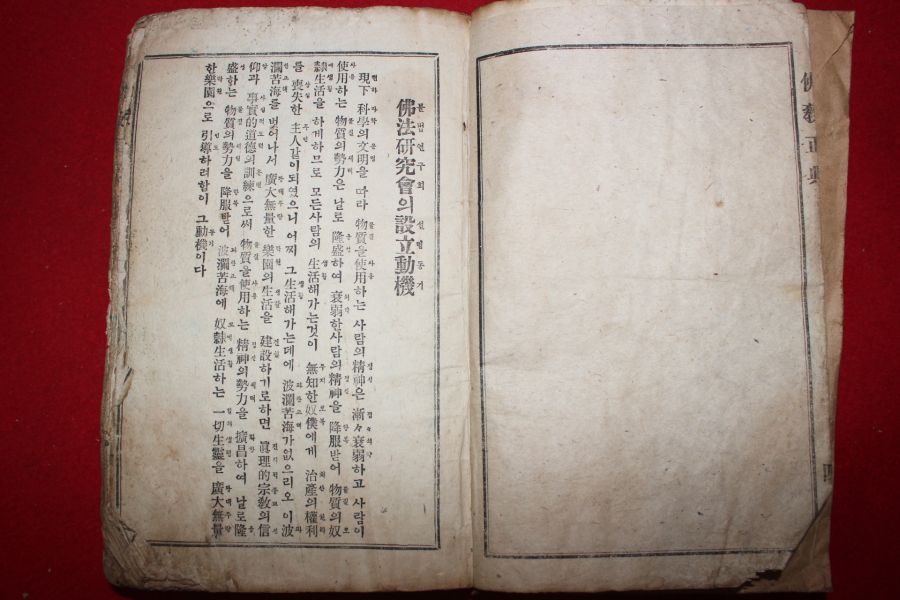 佛敎正典
불법연구회 설립동기
佛法研究會의設立動機
現下 科學의文明을 따라 物質을使用하는 사람의精神은 漸々衰弱하고 사람이
使用하는 物質의勢力은 날로 隆盛하여 衰弱한사람의精神을 降服받어 物質의奴
隸生活을 하게하므로 모든사람의 生活해가는것이 無知한奴僕에게 治產의權利
를 喪失한 主人같이되였으니 어찌 그生活해가는데에 波瀾苦海가없으리오 이波
瀾苦海를 벗어나서 廣大無量한 樂園의生活을 建設하기로하면 眞理的宗敎의信
仰과 事實的道德의訓練으로써 物質을使用하는 精神의勢力을 擴昌하여 날로隆
盛하는 物質의勢力을 降服받어 波瀾苦海에 奴隸生活하는 一切生靈을 廣大無量
한樂園으로 引導하려함이 그動機이다